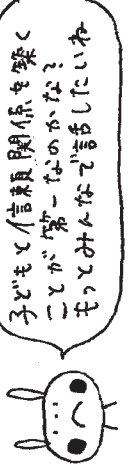 子どもと信頼関係を築く
ことが第一なのかな？
もっとみんなで話したいね